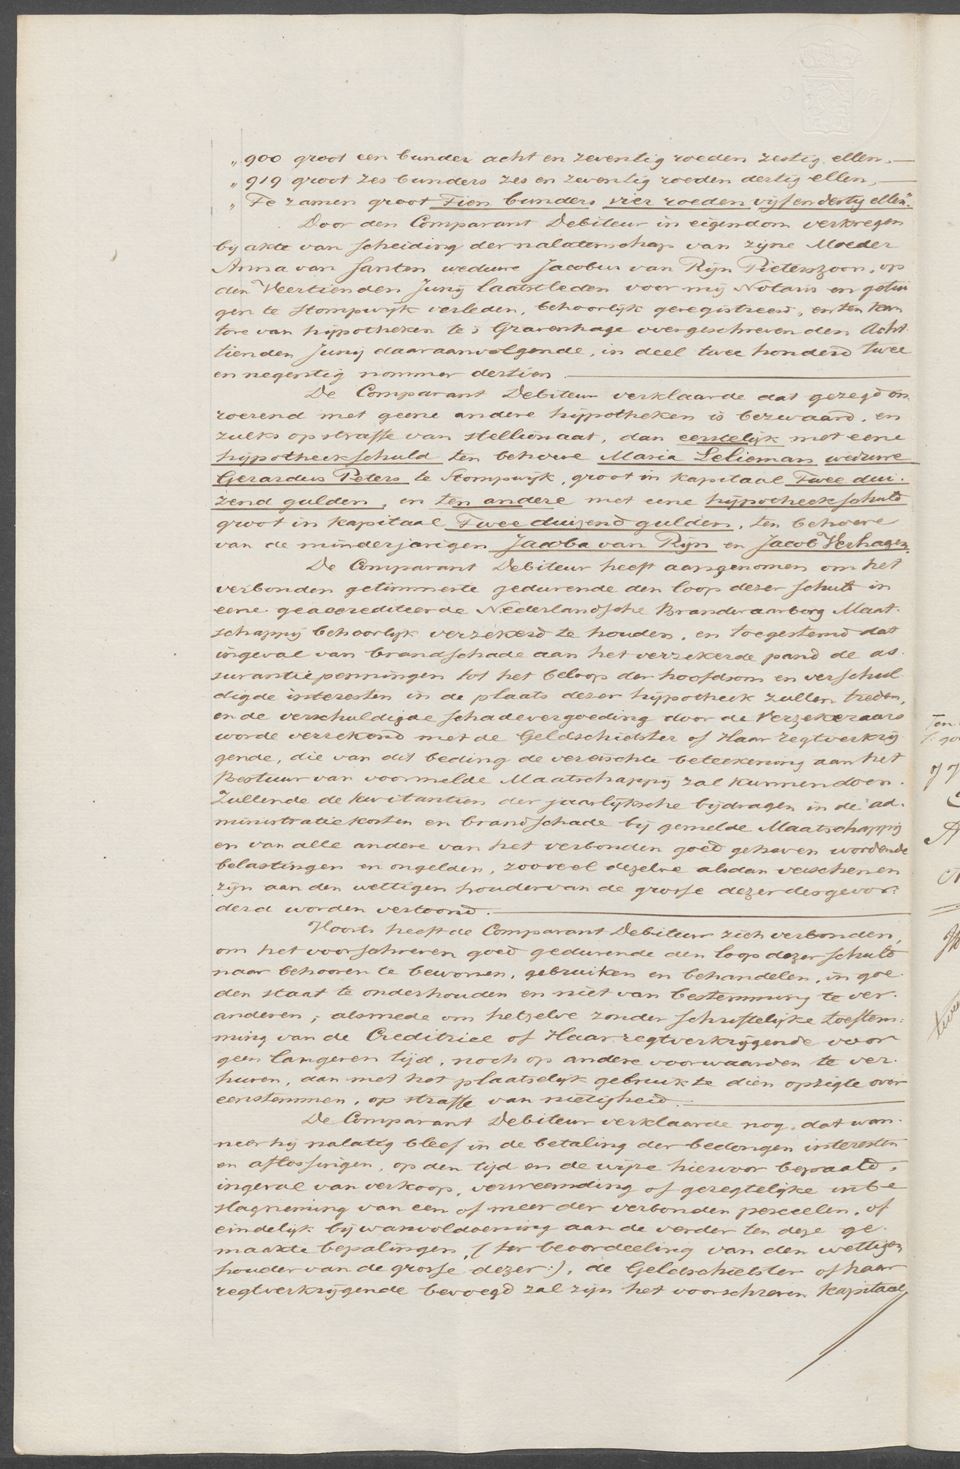 „ 900 groot een bunder acht en zeventig roeden zestig ellen,
„ 919 groot zes bunders zes en zeventig roeden dertig ellen,
„ Te zamen groot Tien bunders vier roeden vijf en dertig ellen".
Door den Comparant Debiteur in eigendom verkregen
bij akte van scheiding der nalatenschap van zijne Moeder
Anna van Santen weduwe Jacobus van Rijn Pieterszoon, op
den Veertienden Junij laatstleden voor mij Notaris en getui
gen te Stompwijk verleden, behoorlijk geregistreerd, en ten kan
tore van hijpotheken te 's Gravenhage overgeschreven den Acht
tienden Junij daaraanvolgende, in deel twee honderd twee
en negentig nommer dertien.
De Comparant Debiteur verklaarde dat gezegd on
roerend met geene andere hijpotheken is bezwaard, en
zulks op straffe van stellionaat, dan eerstelijk met eene
hijpotheekschuld ten behoeve Maria Lelieman weduwe
Gerardus Peters te Stompwijk, groot in kapitaal Twee dui-
zend gulden, en ten andere met eene hijpotheekschuld
groot in kapitaal Twee duizend gulden, ten behoeve
van de minderjarigen Jacoba van Rijn en Jacob Verhagen.
De Comparant Debiteur heeft aangenomen om het
verbonden getimmerte gedurende den loop dezer schuld in
eene geaccrediteerde Nederlandsche Brandwaarborg Maat-
schappij behoorlijk verzekerd te houden, en toegestemd dat
ingeval van brandschade aan het verzekerde pand de as-
surantiepenningen tot het beloop der hoofdsom en verschul
digde interesten in de plaats dezer hijpotheek zullen treden,
en de verschuldigde schadevergoeding door de Verzekeraars
worde verrekend met de Geldschietster of Haar regtverkrij
gende, die van dit beding de vereischte beteekening aan het
Bestuur van voormelde Maatschappij zal kunnen doen.
Zullende de kwitantien der jaarlijksche bijdragen in de ad-
ministratiekosten en brandschade bij gemelde Maatschappij
en van alle andere van het verbonden goed geheven wordende
belastingen en ongelden, zooveel dezelve alsdan verschenen
zijn aan den wettigen houder van de grosse dezer desgevor-
derd worden vertoond.
Voorts heeft de Comparant Debiteur zich verbonden,
om het voorschreven goed gedurende den loop dezer schuld
naar behooren te bewonen, gebruiken en behandelen, in goe-
den staat te onderhouden en niet van bestemming te ver-
anderen, alsmede om hetzelve zonder schriftelijke toestem-
ming van de Creditrice of Haar regtverkrijgende voor
geen langeren tijd, noch op andere voorwaarden te ver-
huren, dan met het plaatselijk gebruik te dien opzigte over
eenstemmen, op straffe van nietigheid.
De Comparant Debiteur verklaarde nog, dat wan-
neer hij nalatig bleef in de betaling der bedongen interesten
en aflossingen, op den tijd en de wijze hiervoor bepaald,
ingeval van verkoop, vervreemding of geregtelijke inbe
slagneming van een of meer der verbonden perceelen, of
eindelijk bij wanvoldoening aan de verder ten deze ge-
maakte bepalingen, (ter beoordeeling van den wettigen
houder van de grosse dezer), de Geldschietster of haar
regtverkrijgende bevoegd zal zijn het voorschreven kapitaal